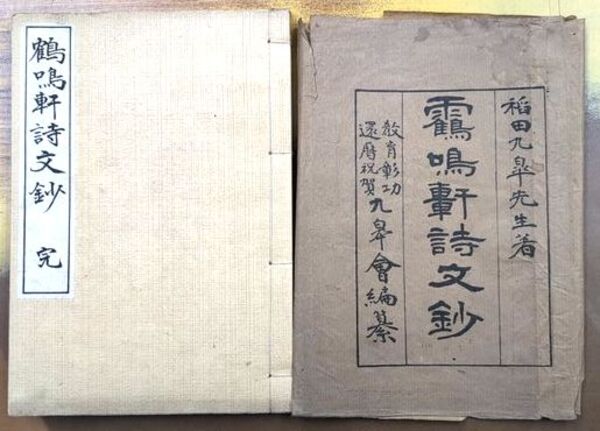 鶴鳴軒詩文鈔 完
稻田九皐先生著
靍鳴軒詩文鈔
教育彰功
還暦祝賀
九皐會編纂